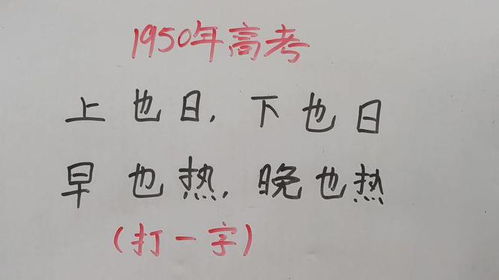 1950年高考
上也日,下也日
早也热,晚也热
(打一字)